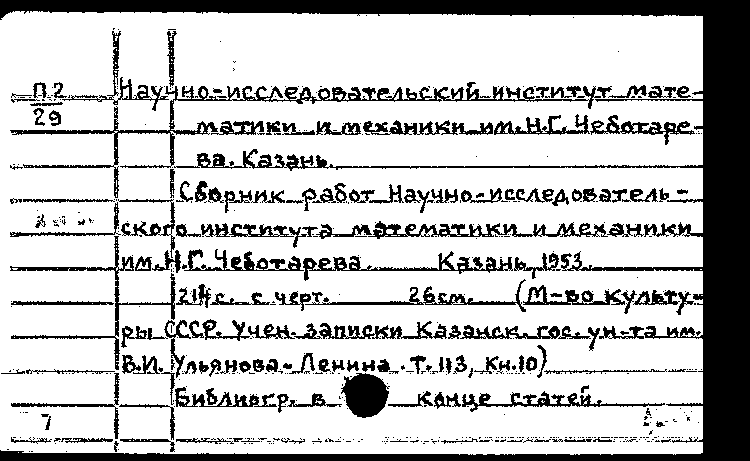 П2 Научно-исследовательский институт мате-
29 матики и механики им. Н.Г. Чеботаре-
ва. Казань.
Сборник работ Научно-исследователь-
ского института математики и механики
им. Н.Г. Чеботарева. Казань, 1953.
с. с черт. 26см. (М-во культу-
ры СССР. Учен. записки Казанск. гос. ун-та им.
В.И. Ульянова-Ленина. Т. 113, Кн.10)
Библиогр. в конце статей.
7